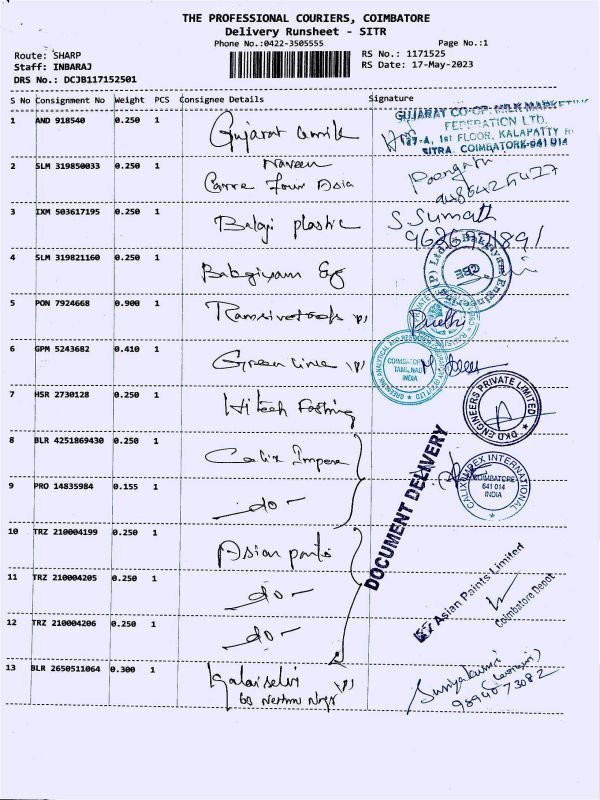 THE PROFESSIONAL COURIERS, COIMBATORE
Delivery Runsheet - SITR
Phone No.:0422-3505555 Page No.:1
Route: SHARP RS No.: 1171525
Staff: INBARAJ RS Date: 17-May-2023
DRS No.: DCJB117152501
S No Consignment No Weight PCS Consignee Details Signature
1 AND 918540 0.250 1 Gujarat amilk
GUJARAT CO-OP. MILK MARKETING
FEDERATION LTD.
127-A, 1st FLOOR, KALAPATTY R
SITRA, COIMBATORE-641 014
2 SLM 319850033 0.250 1 Naveen
Carre four Asia
3 IXM 503617195 0.250 1 Balaji plastic S. Sumathi
4 SLM 319821160 0.250 1
5 PON 7924668 0.900 1 Preethi
6 GPM 5243682 0.410 1 Green line
COIMBATORE
TAMILNADU
INDIA
7 HSR 2730128 0.250 1 Hitech
DKD ENGINEERS PRIVATE LIMITED
8 BLR 4251869430 0.250 1 Calix Impex
CALIX IMPEX INTERNATIONAL
COIMBATORE
641 014
INDIA
9 PRO 14835984 0.155 1 -do-
DOCUMENT DELIVERY
10 TRZ 210004199 0.250 1 Asian paints
11 TRZ 210004205 0.250 1 -do-
Asian Paints Limited
Coimbatore Depot
12 TRZ 210004206 0.250 1 -do-
13 BLR 2650511064 0.300 1 Kalaiselvi
60 Nehru Nagr
Suriyakumari
9894073082